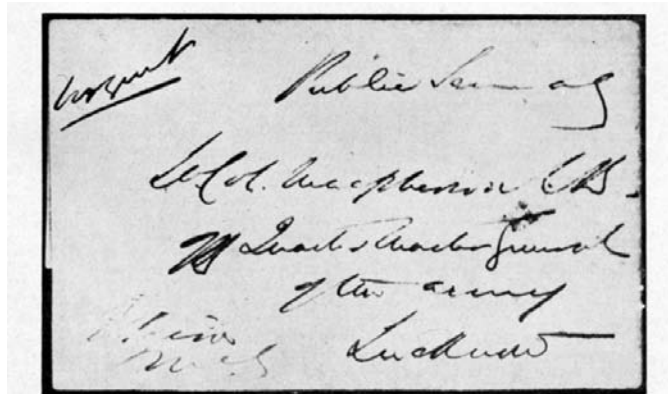 Urgent
Public Service
Lt Col. Macpherson CB.
Quarter Master General
of the army
Lucknow